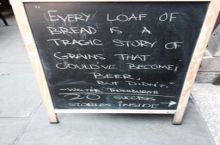 "EVERY LOAF OF
BREAD IS A
TRAGIC STORY OF
GRAINS THAT
COULD'VE BECOME
BEER,
BUT DIDN'T."
- WALTER
20 SUCCESS
STORIES INSIDE